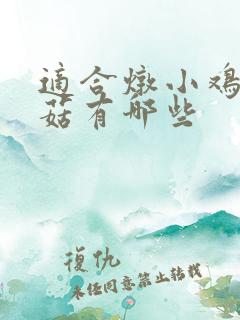 適合燉小鸡
菇有哪些
復仇
未经同意禁止转载